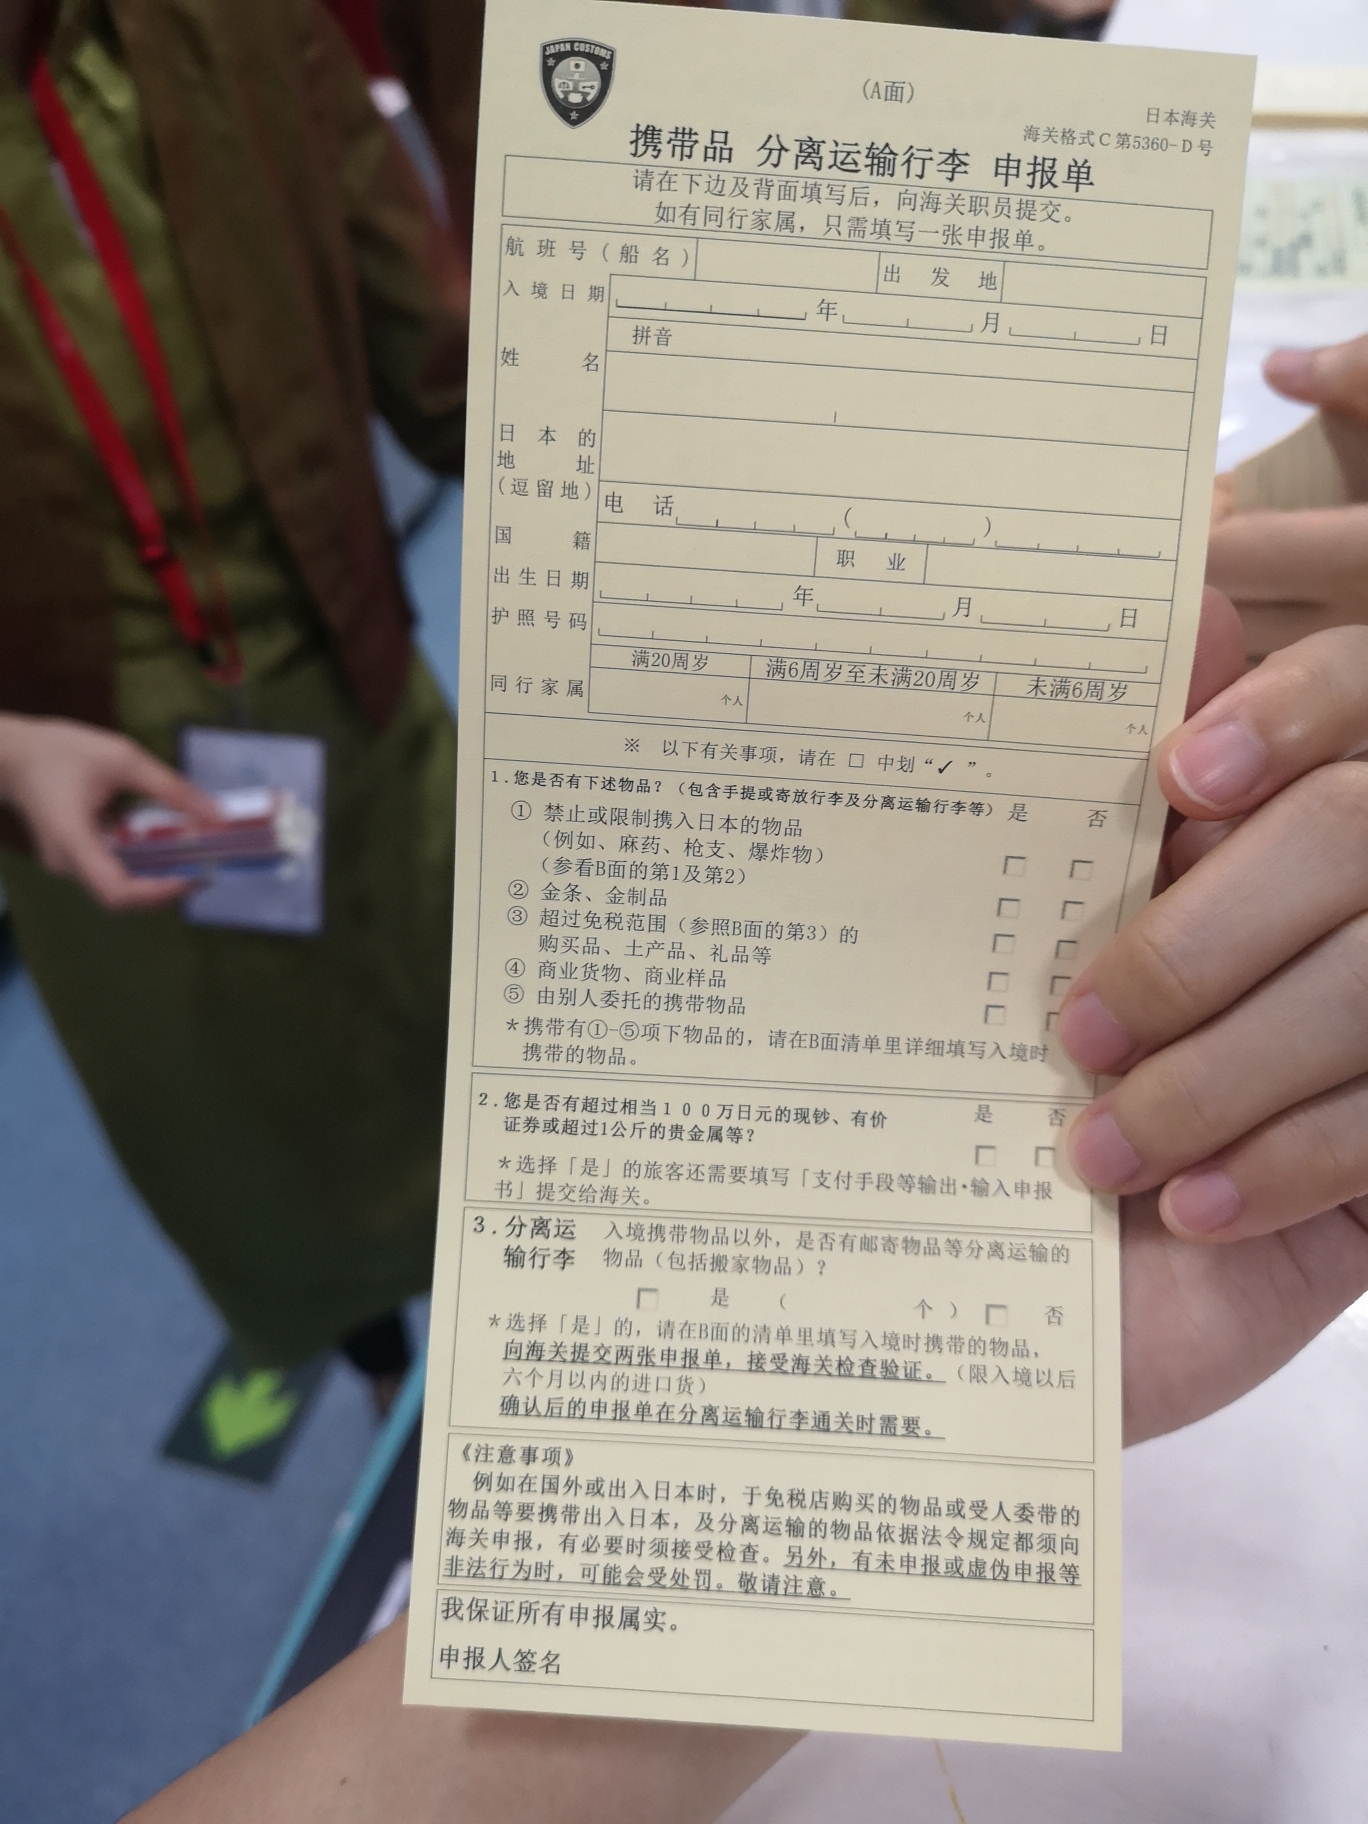 JAPAN CUSTOMS
(A面)
日本海关
海关格式C第5360-D号
携带品 分离运输行李 申报单
请在下边及背面填写后，向海关职员提交。
如有同行家属，只需填写一张申报单。
航班号(船名) 出发地
入境日期 年 月 日
拼音
姓名
日本的
地址
(逗留地)
电话 ( )
国籍 职业
出生日期 年 月 日
护照号码
满20周岁 满6周岁至未满20周岁 未满6周岁
同行家属 个人 个人 个人
※ 以下有关事项，请在 □ 中划“✓”。
1.您是否有下述物品？（包含手提或寄放行李及分离运输行李等） 是 否
① 禁止或限制携入日本的物品
（例如、麻药、枪支、爆炸物）
（参看B面的第1及第2） □ □
② 金条、金制品 □ □
③ 超过免税范围（参照B面的第3）的
购买品、土产品、礼品等 □ □
④ 商业货物、商业样品 □ □
⑤ 由别人委托的携带物品 □ □
*携带有①-⑤项下物品的，请在B面清单里详细填写入境时
携带的物品。
2.您是否有超过相当１００万日元的现钞、有价 是 否
证券或超过1公斤的贵金属等？ □ □
*选择「是」的旅客还需要填写「支付手段等输出·输入申报
书」提交给海关。
3.分离运 入境携带物品以外，是否有邮寄物品等分离运输的
输行李 物品（包括搬家物品）？
□ 是 （ 个 ） □ 否
*选择「是」的，请在B面的清单里填写入境时携带的物品，
向海关提交两张申报单，接受海关检查验证。（限入境以后
六个月以内的进口货）
确认后的申报单在分离运输行李通关时需要。
《注意事项》
例如在国外或出入日本时，于免税店购买的物品或受人委带的
物品等要携带出入日本，及分离运输的物品依据法令规定都须向
海关申报，有必要时须接受检查。另外，有未申报或虚伪申报等
非法行为时，可能会受处罚。敬请注意。
我保证所有申报属实。
申报人签名